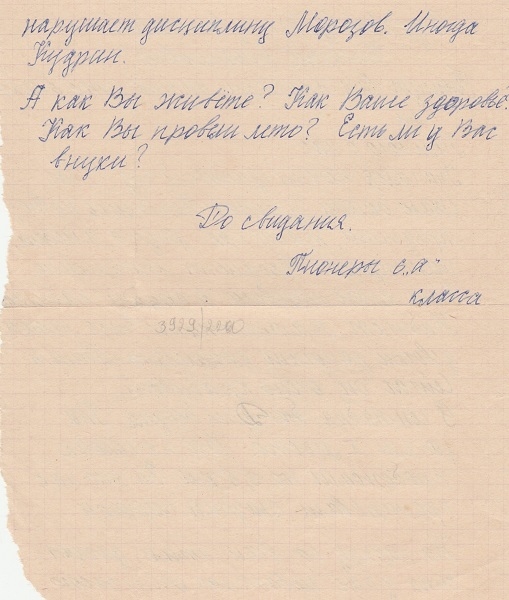 нарушает дисциплину Морозов. Иногда
Кудрин.
А как Вы живёте? Как Ваше здоровье.
Как Вы провели лето? Есть ли у Вас
внуки?
До свидания.
Пионеры 6 „а"
класса
3979/200